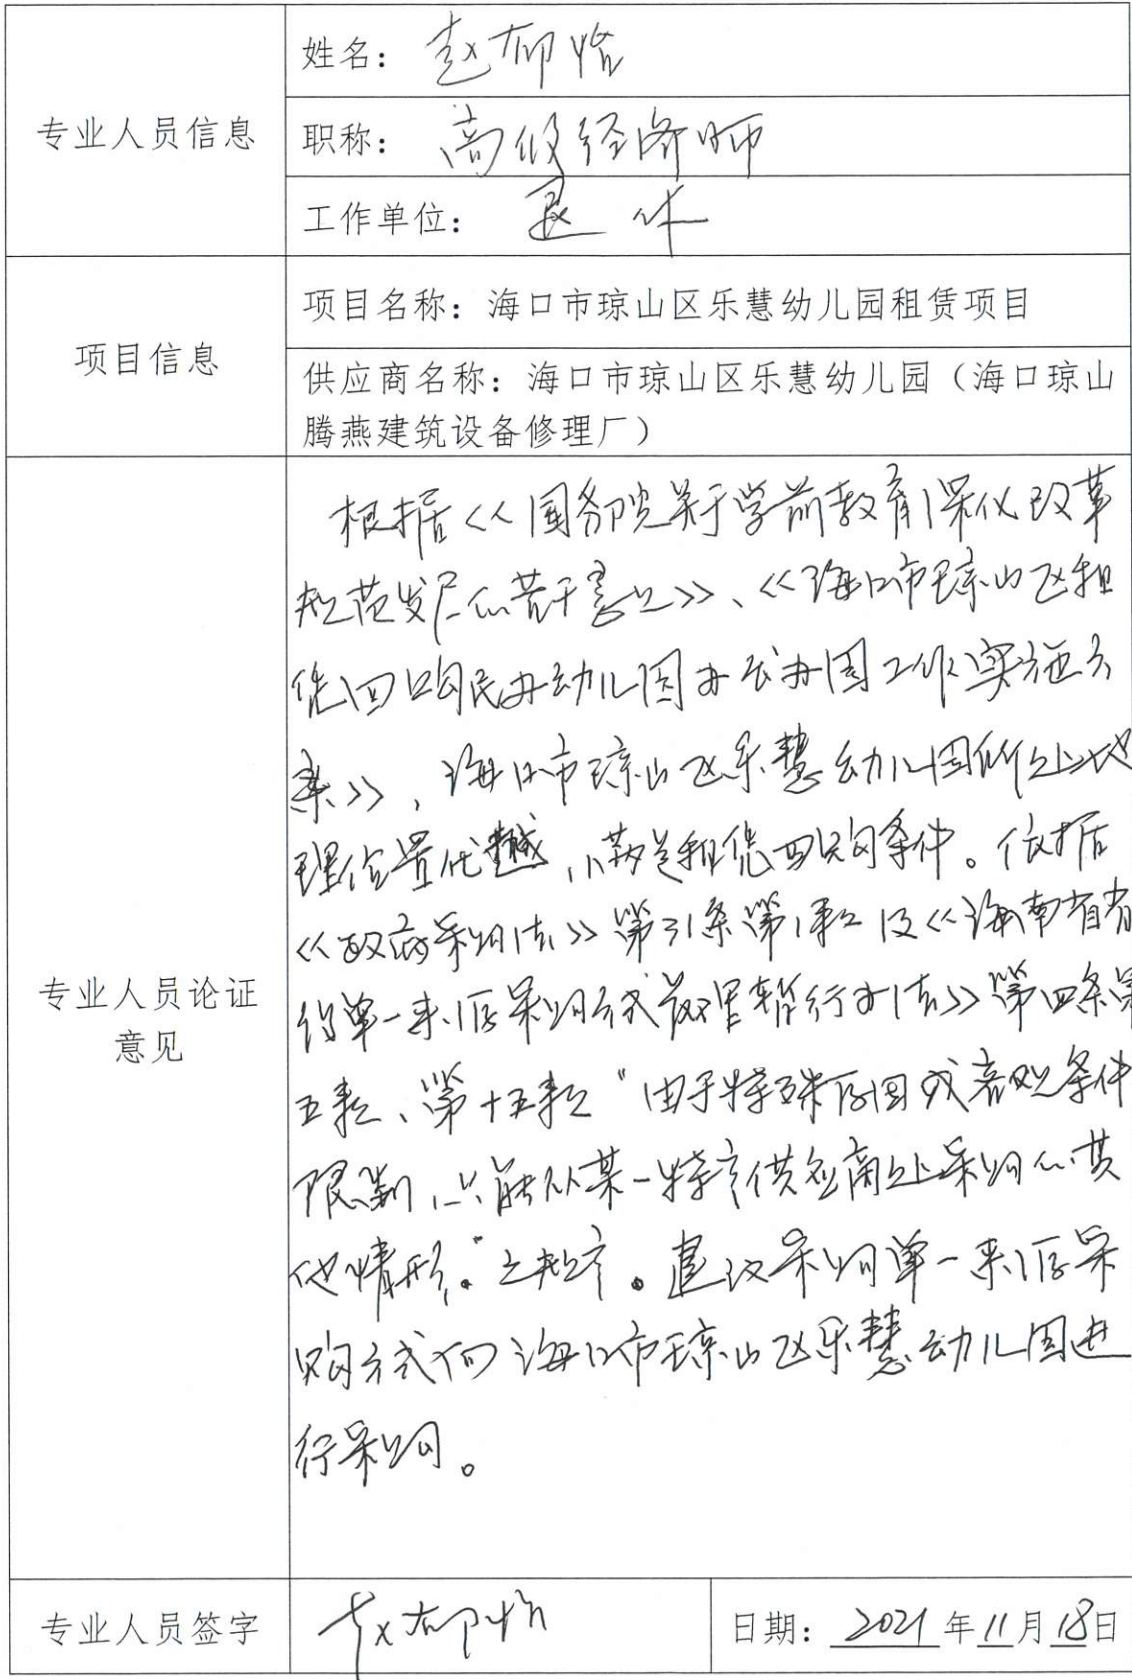 专业人员信息
姓名：赵郁怡
职称：高级经济师
工作单位：退休
项目信息
项目名称：海口市琼山区乐慧幼儿园租赁项目
供应商名称：海口市琼山区乐慧幼儿园（海口琼山
腾燕建筑设备修理厂）
专业人员论证
意见
根据《国务院关于学前教育深化改革
规范发展的若干意见》、《海口市琼山区租
赁回购民办幼儿园办公办园工作实施方
案》，海口市琼山区乐慧幼儿园所处地
理位置优越，满足租赁回购条件。依据
《政府采购法》第31条第1款及《海南省省
级单一来源采购方式管理暂行办法》第四条第
五款、第十五款“由于特殊原因或客观条件
限制，只能从某一特定供应商处采购的其
他情形。”之规定。建议采购单一来源采
购方式向海口市琼山区乐慧幼儿园进
行采购。
专业人员签字
日期：2021年11月18日